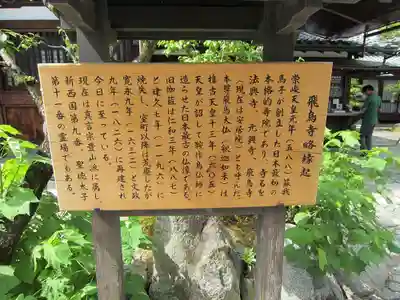 飛鳥寺略縁起
崇峻天皇元年（五八八）蘇我
馬子が創立した日本最初の
本格的寺院であり、寺名を
法興寺、元興寺、飛鳥寺
（現在は安居院）ととなえた。
本尊飛鳥大仏（釈迦如来）は
推古天皇十三年（六〇五）
天皇が詔して鞍作鳥仏師に
造らせた日本最古の仏像である。
旧伽藍は仁和三年（八八七）
と建久七年（一一九六）に
焼失し、室町以降は荒廃したが
寛永九年（一六三二）と文政
九年（一八二六）に再建され
今日に至っている。
現在は真言宗豊山派に属し
新西国第九番、聖徳太子
第十一番の霊場である。